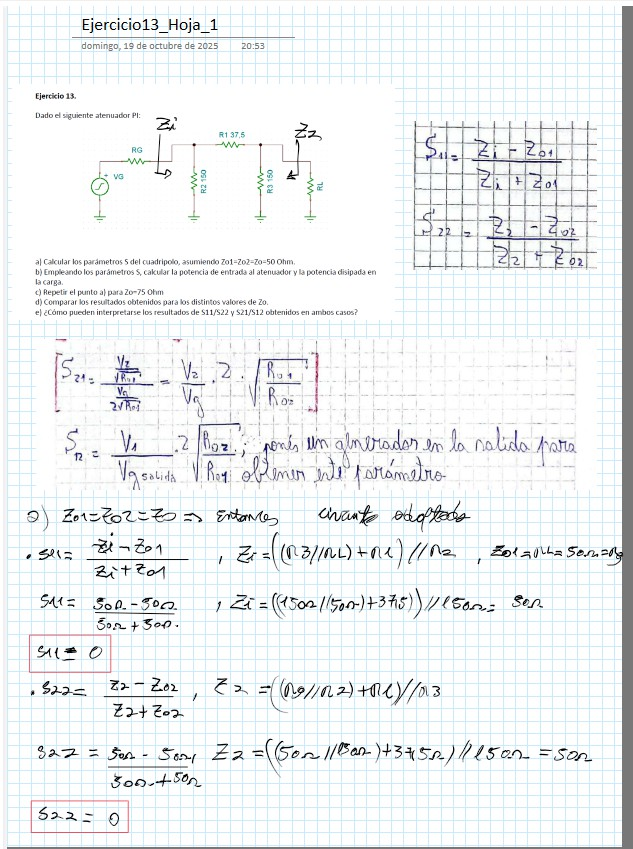 Ejercicio13_Hoja_1
domingo, 19 de octubre de 2025 20:53
Ejercicio 13.
Dado el siguiente atenuador PI:
Zi
Z2
R1 37,5
RG
VG
R2 150
R3 150
RL
S11 = Zi - Z01 / Zi + Z01
S22 = Z2 - Z02 / Z2 + Z02
a) Calcular los parámetros S del cuadripolo, asumiendo Zo1=Zo2=Zo=50 Ohm.
b) Empleando los parámetros S, calcular la potencia de entrada al atenuador y la potencia disipada en
la carga.
c) Repetir el punto a) para Zo=75 Ohm
d) Comparar los resultados obtenidos para los distintos valores de Zo.
e) ¿Cómo pueden interpretarse los resultados de S11/S22 y S21/S12 obtenidos en ambos casos?
S21 = = V2 / Vg . 2 . √ R01 / R02
S12 = V1 / Vg salida . 2 √ R02 / R01 ; ponés un generador en la salida para
obtener este parámetro
a) Z01=Z02=Z0 => Entonces circuito adaptado
. S11 = Zi - Z01 / Zi + Z01 , Zi = ((R3//RL) + R1) // R2 , Z01=RL=50Ω=Rg
S11 = 50Ω - 50Ω / 50Ω + 50Ω. , Zi = ((150Ω//50Ω)+37,5))//150Ω = 50Ω
S11 = 0
. S22 = Z2 - Z02 / Z2 + Z02 , Z2 = ((Rg//R2) + R1)//R3
S22 = 50Ω - 50Ω / 50Ω + 50Ω Z2 = ((50Ω//150Ω)+37,5Ω)//150Ω = 50Ω
S22 = 0